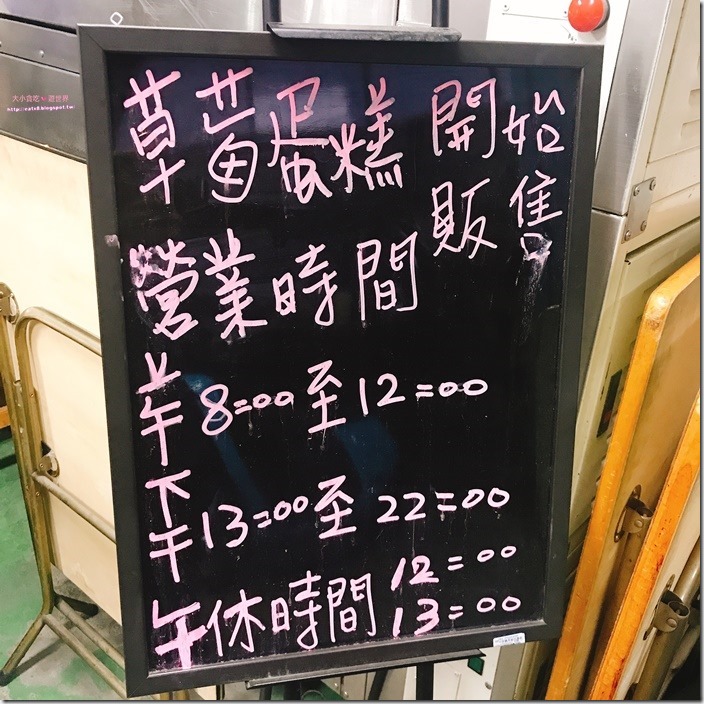 大小貪吃 遊世界
http://eats8.blogspot.tw
草莓蛋糕 開始
販售
營業時間
上午 8=00 至 12=00
下午 13=00 至 22=00
午休時間 12=00
13=00